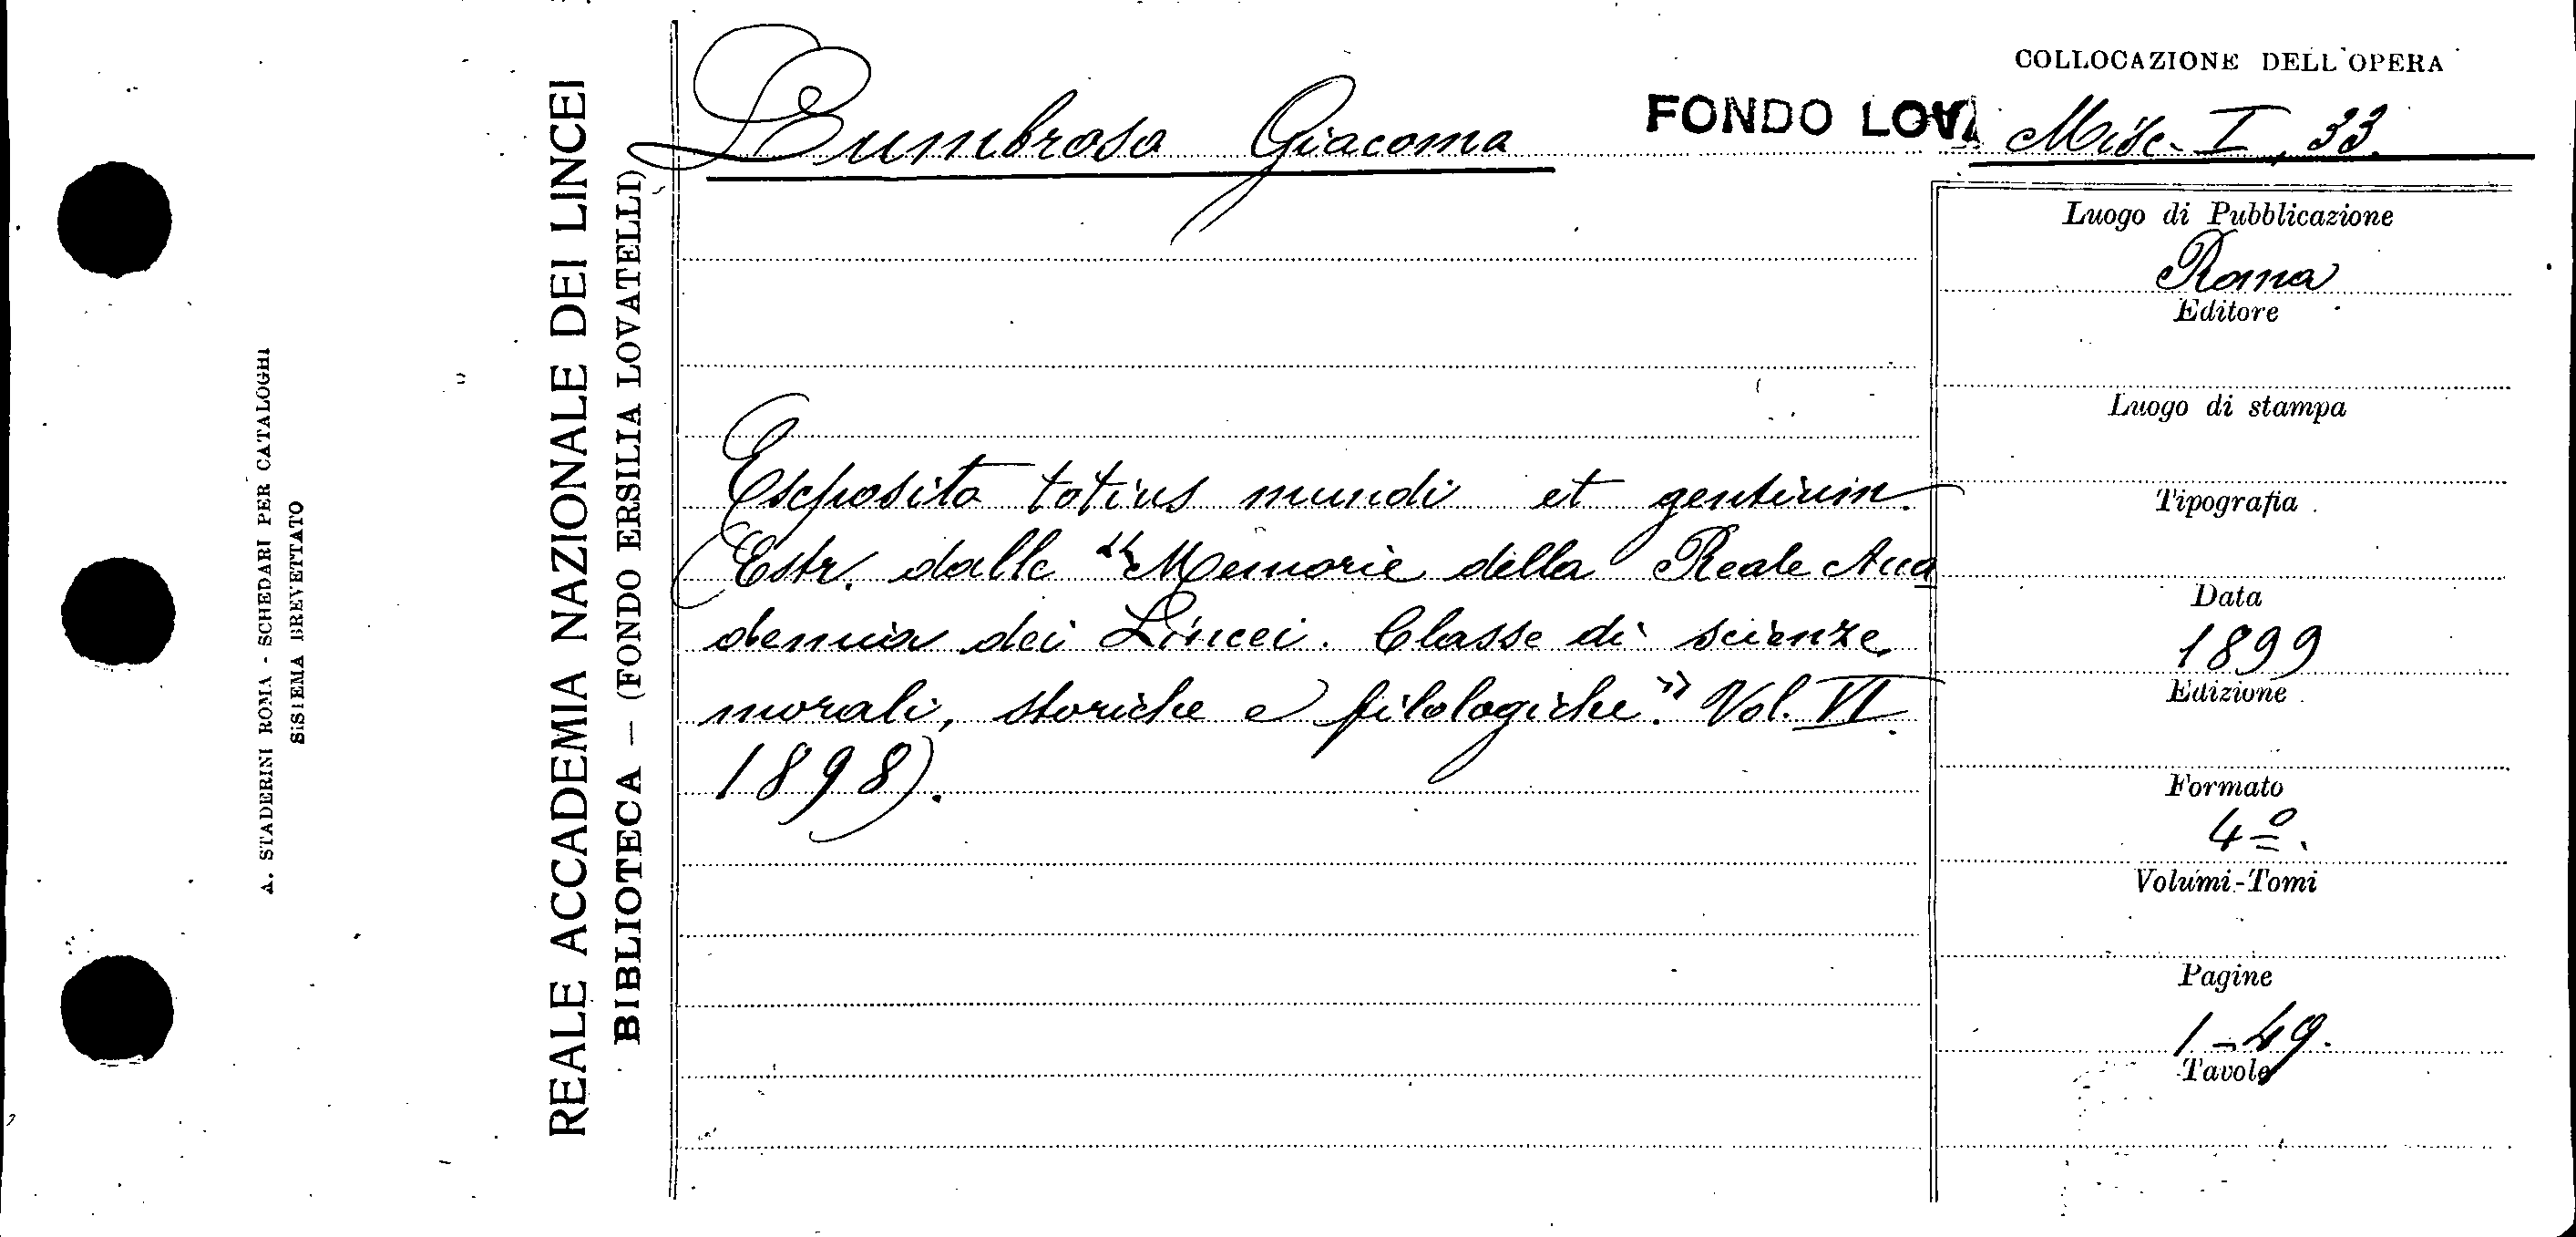 A. STADERINI ROMA - SCHEDARI PER CATALOGHI
SISTEMA BREVETTATO
REALE ACCADEMIA NAZIONALE DEI LINCEI
BIBLIOTECA — (FONDO ERSILIA LOVATELLI)
COLLOCAZIONE DELL'OPERA
Lumbroso Giacomo
FONDO LOVA Misc. I, 33.
Esposito totius mundi et gentium.
(Estr. dalle "Memorie della Reale Acca
demia dei Lincei. Classe di scienze
morali, storiche e filologiche." Vol. VI.
1898).
Luogo di Pubblicazione
Roma
Editore
Luogo di stampa
Tipografia
Data
1899
Edizione
Formato
4º.
Volumi-Tomi
Pagine
1-49.
Tavole